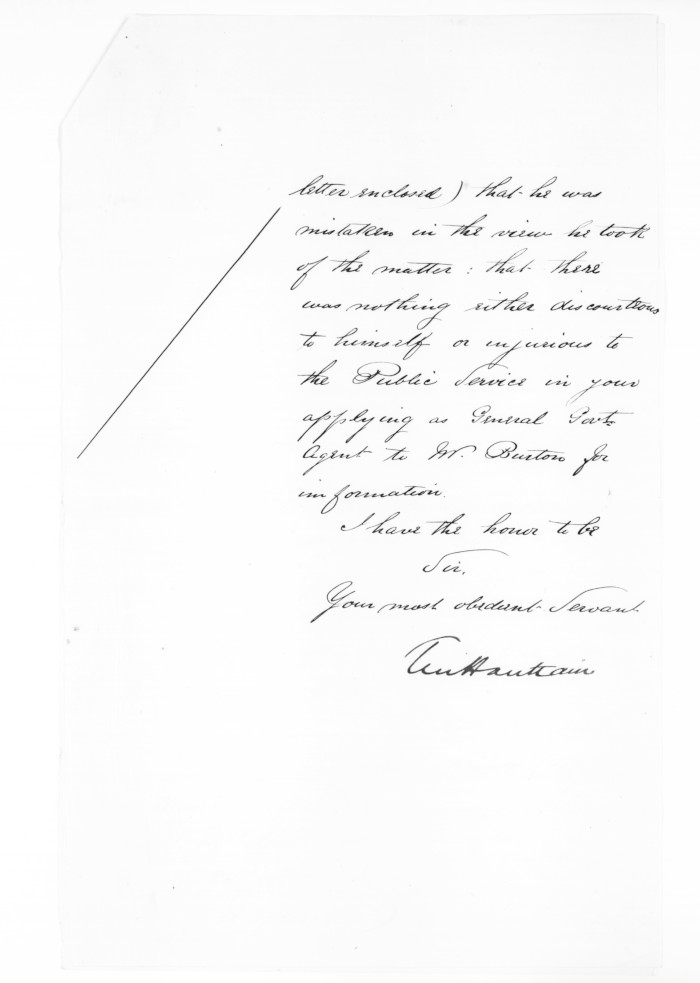 letter enclosed) that he was
mistaken in the view he took
of the matter: that there
was nothing either discourteous
to himself or injurious to
the Public Service in your
applying as General Govt
Agent to Mr. Burton for
information.
I have the honor to be
Sir.
Your most obedient Servant